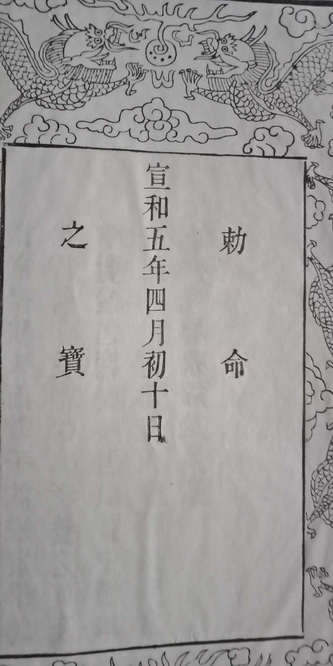 勅命
宣和五年四月初十日
之寶